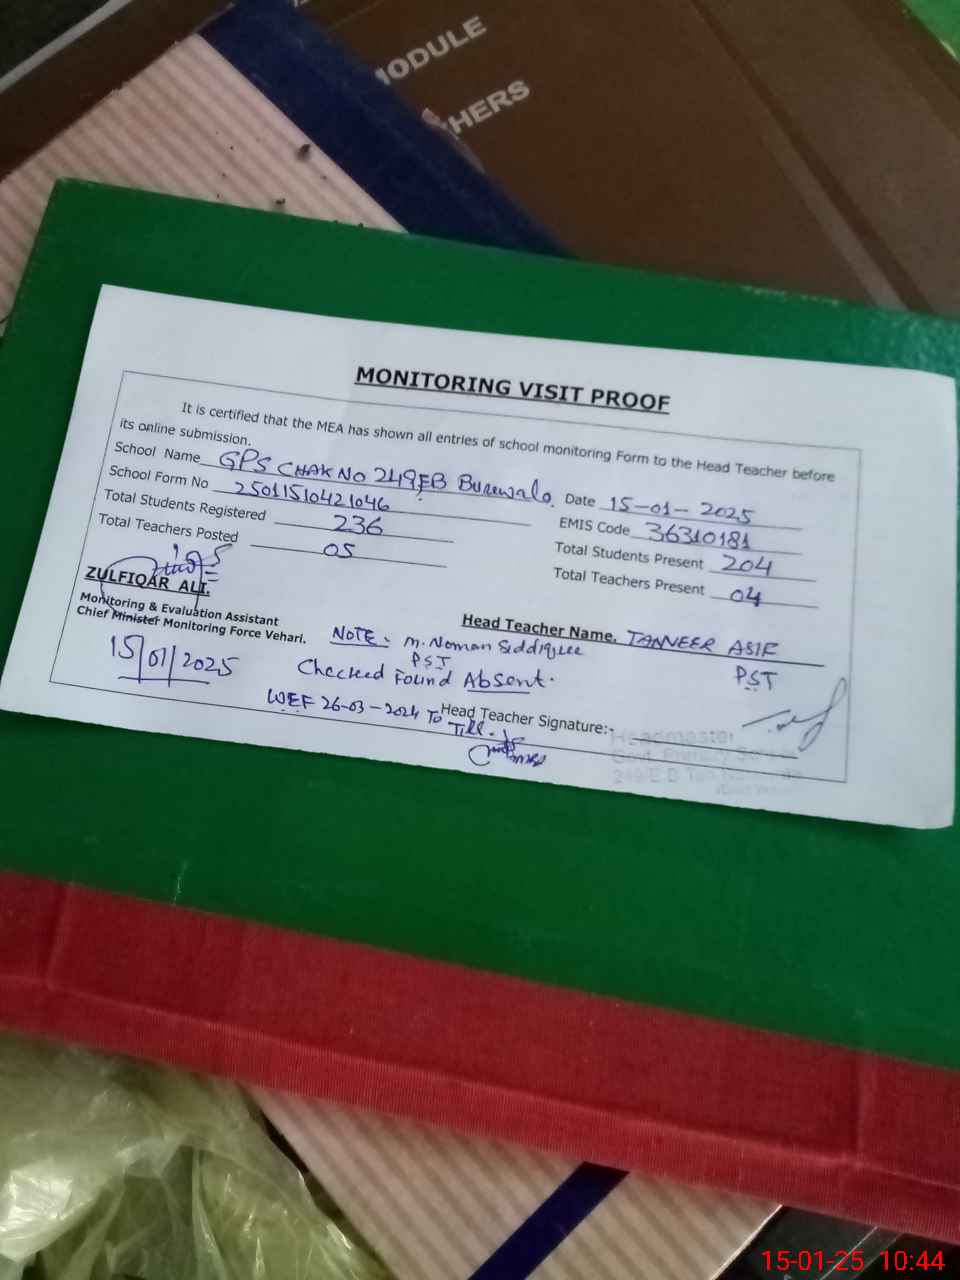 MODULE
HERS
MONITORING VISIT PROOF
It is certified that the MEA has shown all entries of school monitoring Form to the Head Teacher before
its online submission.
School Name GPS CHAK NO 249EB Burewala. Date 15-01-2025
School Form No 25011510421046 EMIS Code 36310181
Total Students Registered 236 Total Students Present 204
Total Teachers Posted 05 Total Teachers Present 04
ZULFIQAR ALI.
Monitoring & Evaluation Assistant
Chief Minister Monitoring Force Vehari.
15/01/2025
Head Teacher Name. TANVEER ASIF
PST
NOTE:- M. Noman Siddiquee
PST
Checked Found Absent.
WEF 26-03-2024 To
Till.
Head Teacher Signature:-
Headmaster
Govt. Primary School
249/E.B
15-01-25 10:44